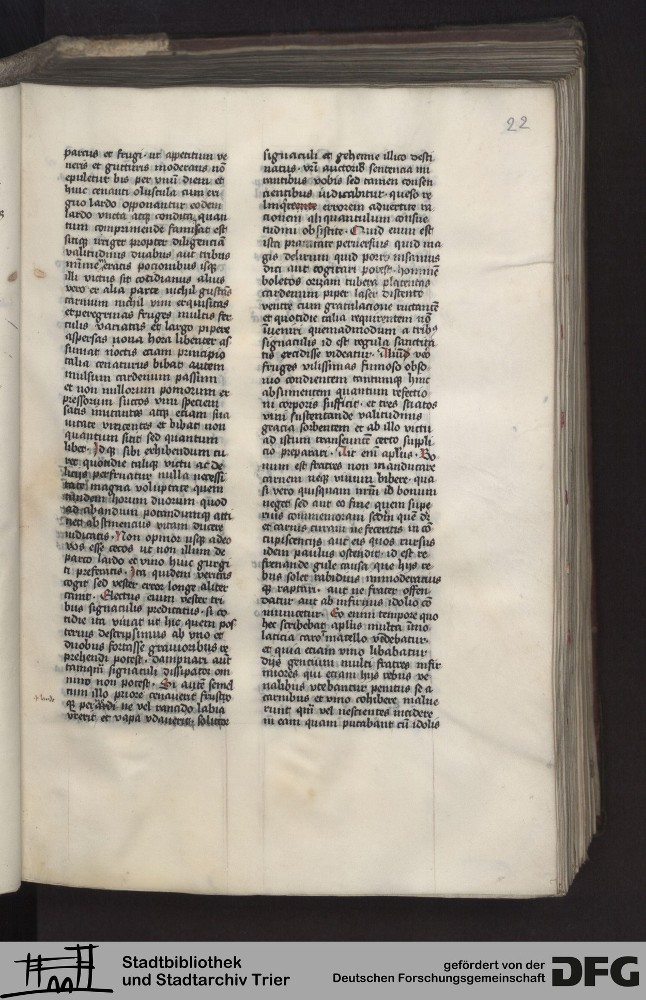 22
parcus et frugi · ut appetitum ve
neris et gutturis moderans nō
epuletur bis per unū diem et
huic cenanti oluscula cum exi
guo lardo opponantur eodem
lardo uncta atqȝ condita quan
tum comprimende famī sat est
sitiqȝ irriget propter diligenciā
valitudinis duabus aut tribus
meracis pocionibus isqȝ
illi victus sit cotidianus alius
vero ex alia parte nichil gustās
carnium nichil vini exquisitas
et peregrinas fruges multis fer
culis variatas et largo pipere
aspersas nona hora libenter as
sumat noctis eciam principio
talia cenaturus bibat autem
mulsum carenum passum
et non nullorum pomorum ex
pressorum succos vini speciem
satis imitantes atqȝ etiam sua
vitate vincentes et bibat non
quantum sitit sed quantum
libet · Idqȝ sibi exhibendum cu
ret quotidie talique victu ac de
licijs perfruatur nulla necessi
tate magna voluptate quem
tandem horum duorum quod
ad abandum potandumqȝ atti
net abstinencius vitam ducere
iudicatis · Non opinor usqȝ adeo
vos esse cecos ut non illum de
parco lardo et vino huic gurgi
ti preferatis · Ita quidem veritas
cogit sed vester error longe aliter
canit · Electus enim vester tri
bus signaculis predicatus · si co
tidie ita vivat ut hic quem pos
terius descripsimus ab uno et
duobus fortasse gravioribus re
prehendi potest · dampnari aut
tamquam signaculi dissipator om
nino non potest · Si autem semel
cum illo priore cenaverit frusto
qȝ perne vel rancido labia
unxerit et vapa udaverit · solutor
signaculi et gehenne illico desti
natus · vestri auctoris sentencia mi
rantibus vobis sed tamen consen
cientibus iudicabitur · queso re
linquere errorem advertite ra
cionem aliquantulum consue
tudini obsistite · Quid enim est
ista pravitate perversius quid ma
gis delirum quid porro insanius
dici aut cogitari potest · hominē
boletos orizam tubera placentas
carenum piper laser distento
ventre cum gratulacione ructantē
et quotidie talia requirentem nō
inveniri quemadmodum a tribus
signaculis id est regula sanctita
tis excidisse videatur · Alium vero
fruges vilissimas fumoso obso
nio condientem tantumqȝ hinc
absumentem quantum refectio
ni corporis sufficit · et tres ciatos
vini sustentande valitudinis
gracia sorbentem et ab illo victu
ad istum transeuntem certo suppli
cio preparari · Ait enim apostolus · Bo
num est fratres non manducare
carnem neqȝ vinum bibere · qua
si vero quisquam nostrum id bonum
neget sed aut eo fine quem supe
rius commemoravi sed
et carnis curam ne feceritis in cō
cupiscencijs aut eis quos rursus
idem paulus ostendit · id est re
frenande gule causa que hijs re
bus solet rabidius immoderacius
qȝ raptari · aut ne frater offen
datur aut ab infirmis idolio cō
municetur · Eo enim tempore quo
hec scribebat apostolus multa immo
laticia caro in macello vendebatur
et quia eciam vino libabatur
dijs gencium multi fratres infir
miores qui eciam hijs rebus ve
nalibus utebantur penitus se a
carnibus et vino cohibere malue
runt quam vel nescientes incidere
in eam quam putabant cum idolis
Stadtbibliothek
und Stadtarchiv Trier
gefördert von der
Deutschen Forschungsgemeinschaft
DFG